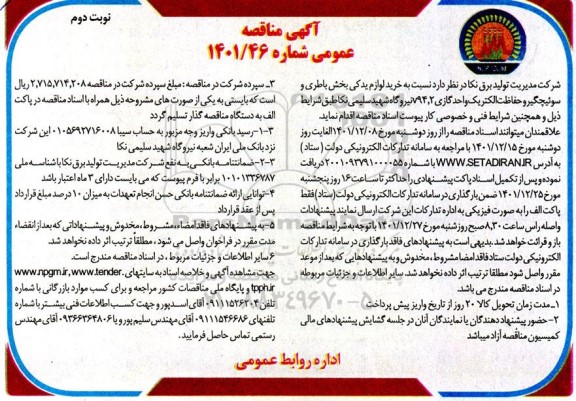 نوبت دوم
آگهی مناقصه
عمومی شماره ۱۴۰۱/۴۶
شرکت مدیریت تولید برق نکا در نظر دارد نسبت به خرید لوازم یدکی بخش باطری و
سوئیچگیر و حفاظت الکتریک واحد گازی ۷۹۴.۲ نیروگاه شهید سلیمی نکا طبق شرایط
ذیل و همچنین شرایط فنی و خصوصی کار پیوست اسناد مناقصه اقدام نماید
علاقمندان میتوانند اسناد مناقصه را از روز دوشنبه مورخ ۱۴۰۱/۱۲/۰۸ الغایت روز
دوشنبه مورخ ۱۴۰۱/۱۲/۱۵ با مراجعه به سامانه تدارکات الکترونیکی دولت ( ستاد)
به آدرس WWW.SETADIRAN.IR با شماره ۲۰۰۱۰۹۳۹۹۱۰۰۰۰۵۵ دریافت
نموده و پس از تکمیل اسناد پاکت پیشنهادی را حداکثر تا ساعت ۱۶ روز پنجشنبه
مورخ ۱۴۰۱/۱۲/۲۵ ضمن بارگذاری در سامانه تدارکات الکترونیکی دولت (ستاد) فقط
پاکت الف را به صورت فیزیکی به اداره تدارکات این شرکت ارسال نمایند پیشنهادات
واصله راس ساعت ۸.۳۰ صبح روز شنبه مورخ ۱۴۰۱/۱۲/۲۷ با توجه به شرایط مناقصه
باز و قرائت خواهد شد. بدیهی است به پیشنهادهای فاقد بارگذاری در سامانه تدارکات
الکترونیکی دولت ستاد فاقد امضا مشروط ، مخدوش و به پیشنهادهایی که بعد از موعد
مقرر واصل شود مطلقا ترتیب اثر داده نخواهد شد. سایر اطلاعات و جزئیات مربوطه
در اسناد مناقصه مندرج می باشد.
۱ـ مدت زمان تحویل کالا ۲۰ روز از تاریخ واریز پیش پرداخت
۲ـ حضور پیشنهاد دهندگان یا نمایندگان آنان در جلسه گشایش پیشنهادهای مالی
کمیسیون مناقصه آزاد میباشد
۳ـ سپرده شرکت در مناقصه : مبلغ سپرده شرکت در مناقصه ۲,۷۱۵,۷۱۴,۲۰۸ ریال
است که بایستی به یکی از صورت های مشروحه ذیل همراه با اسناد مناقصه در پاکت
الف به دستگاه مناقصه گذار تسلیم گردد
۳-۱- رسید بانکی واریز وجه مزبور به حساب سیبا ۰۱۰۵۶۹۲۷۱۶۰۰۸ این شرکت
نزد بانک ملی ایران شعبه نیروگاه شهید سلیمی نکا
۳-۲- ضمانتنامه بانکی به نفع شرکت مدیریت تولید برق نکا با شناسه ملی
۱۰۱۰۱۳۳۶۷۸۷ برابر با فرم پیوست که می بایست دارای ۳ ماه اعتبار باشد
۴-توانایی ارائه ضمانتنامه بانکی حسن انجام تعهدات به میزان ۱۰ درصد مبلغ قرارداد
پس از عقد قرارداد
۵- به پیشنهادهای فاقد امضاء، مشروط، مخدوش و پیشنهاداتی که بعد از انقضاء
مدت مقرر در فراخوان واصل می شود ، مطلقاً ترتیب اثر داده نخواهد شد.
۶ سایر اطلاعات و جزئیات مربوط ، در اسناد مناقصه مندرج است.
جهت مشاهده آگهی و خلاصه اسناد به سایتهای www.npgm.ir, www.tender.
tpph.ir و پایگاه ملی مناقصات کشور مراجعه و برای کسب موارد بازرگانی با شماره
تلفن ۰۹۱۱۱۵۲۶۲۰۴ آقای اسدپور و جهت کسب اطلاعات فنی بیشتر با شماره
تلفنهای ۰۹۱۱۱۵۴۶۶۸۶ آقای مهندس سلیم پور و یا ۰۹۳۶۶۳۶۴۸۰۶ آقای مهندس
رستمی تماس حاصل فرمایید.
اداره روابط عمومی